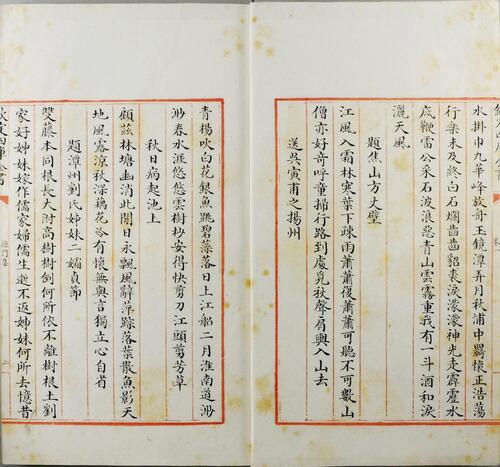 水掛巾九華峰放舟玉鏡潭弄月秋浦中羈懷正浩蕩
行樂未及終白石爛齒齒貂裘淚濛濛神光走霹靂水
底鞭雷公采石波浪惡青山雲霧重我有一斗酒和淚
灑天風
題焦山方丈壁
江風入霜林寒葉下疎雨蕭蕭復蕭蕭可聽不可數山
僧亦好奇呼童掃行路到處見秋聲肩輿入山去
送吳寅甫之揚州
青楊吹白花銀魚跳碧藻落日上江船二月淮南道渺
渺春水涯悠悠雲樹杪安得快剪刀江頭剪芳草
秋日病起池上
顧茲林塘幽消此閒日永飄風辭萍踪落葉散魚影天
地風露涼秋深藕花冷有懷無與言獨立心自省
題潭州劉氏姊妹二孀貞節
雙藤本同根長大附高樹樹倒何所依不離樹根土劉
家好姊妹嫁作儒家婦儒生逝不返姊妹何所去憶昔
雁門集
二